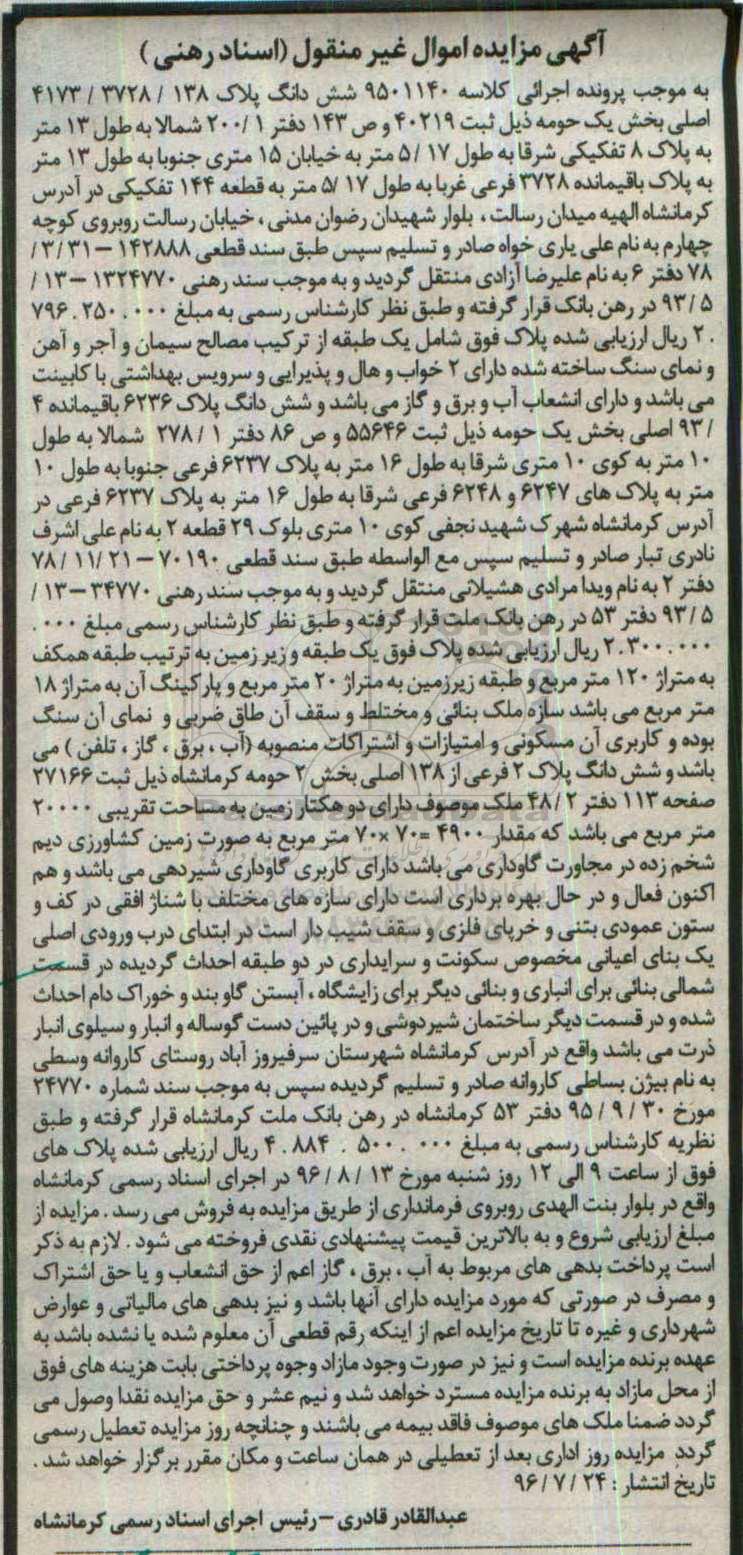 آگهی مزایده اموال غیر منقول (اسناد رهنی)
به موجب پرونده اجرائی کلاسه ۹۵۰۱۱۴۰ شش دانگ پلاک ۱۳۸ / ۳۷۲۸ / ۴۱۷۳
اصلی بخش یک حومه ذیل ثبت ۴۰۲۱۹ و ص ۱۴۳ دفتر ۱ /۲۰۰ شمالا به طول ۱۳ متر
به پلاک ۸ تفکیکی شرقا به طول ۱۷ /۵ متر به خیابان ۱۵ متری جنوبا به طول ۱۳ متر
به پلاک باقیمانده ۳۷۲۸ فرعی غربا به طول ۱۷ /۵ متر به قطعه ۱۴۴ تفکیکی در آدرس
کرمانشاه الهیه میدان رسالت ، بلوار شهیدان رضوان مدنی ، خیابان رسالت روبروی کوچه
چهارم به نام علی یاری خواه صادر و تسلیم سپس طبق سند قطعی ۱۴۲۸۸۸ – ۳۱ /۳ /
۷۸ دفتر ۶ به نام علیرضا آزادی منتقل گردید و به موجب سند رهنی ۱۳۲۴۷۷۰ – ۱۳ /
۵ /۹۳ در رهن بانک قرار گرفته و طبق نظر کارشناس رسمی به مبلغ ۰۰۰ . ۲۵۰ . ۷۹۶
. ۲ ریال ارزیابی شده پلاک فوق شامل یک طبقه از ترکیب مصالح سیمان و آجر و آهن
و نمای سنگ ساخته شده دارای ۲ خواب و هال و پذیرایی و سرویس بهداشتی با کابینت
می باشد و دارای انشعاب آب و برق و گاز می باشد و شش دانگ پلاک ۶۲۳۶ باقیمانده ۴
/ ۹۳ اصلی بخش یک حومه ذیل ثبت ۵۵۶۴۶ و ص ۸۶ دفتر ۱ /۲۷۸ شمالا به طول
۱۰ متر به کوی ۱۰ متری شرقا به طول ۱۶ متر به پلاک ۶۲۳۷ فرعی جنوبا به طول ۱۰
متر به پلاک های ۶۲۴۷ و ۶۲۴۸ فرعی شرقا به طول ۱۶ متر به پلاک ۶۲۳۷ فرعی در
آدرس کرمانشاه شهرک شهید نجفی کوی ۱۰ متری بلوک ۲۹ قطعه ۲ به نام علی اشرف
نادری تبار صادر و تسلیم سپس مع الواسطه طبق سند قطعی ۷۰۱۹۰ – ۲۱ /۱۱ /۷۸
دفتر ۲ به نام ویدا مرادی هشیلانی منتقل گردید و به موجب سند رهنی ۳۴۷۷۰ – ۱۳ /
۵ /۹۳ دفتر ۵۳ در رهن بانک ملت قرار گرفته و طبق نظر کارشناس رسمی مبلغ ۰۰۰ .
۰۰۰ . ۲.۳۰۰ ریال ارزیابی شده پلاک فوق یک طبقه و زیر زمین به ترتیب طبقه همکف
به متراژ ۱۲۰ متر مربع و طبقه زیرزمین به متراژ ۲۰ متر مربع و پارکینگ آن به متراژ ۱۸
متر مربع می باشد سازه ملک بنائی و مختلط و سقف آن طاق ضربی و نمای آن سنگ
بوده و کاربری آن مسکونی و امتیازات و اشتراکات منصوبه (آب ، برق ، گاز ، تلفن) می
باشد و شش دانگ پلاک ۲ فرعی از ۱۳۸ اصلی بخش ۲ حومه کرمانشاه ذیل ثبت ۲۷۱۶۶
صفحه ۱۱۳ دفتر ۲ /۴۸ ملک موصوف دارای دو هکتار زمین به مساحت تقریبی ۲۰۰۰۰
متر مربع می باشد که مقدار ۴۹۰۰ =۷۰ ×۷۰ متر مربع به صورت زمین کشاورزی دیم
شخم زده در مجاورت گاوداری می باشد دارای کاربری گاوداری شیردهی می باشد و هم
اکنون فعال و در حال بهره برداری است دارای سازه های مختلف با شناژ افقی در کف و
ستون عمودی بتنی و خرپای فلزی و سقف شیب دار است در ابتدای درب ورودی اصلی
یک بنای اعیانی مخصوص سکونت و سرایداری در دو طبقه احداث گردیده در قسمت
شمالی بنائی برای انباری و بنائی دیگر برای زایشگاه ، آبستن گاو بند و خوراک دام احداث
شده و در قسمت دیگر ساختمان شیردوشی و در پائین دست گوساله و انبار و سیلوی انبار
ذرت می باشد واقع در آدرس کرمانشاه شهرستان سرفیروز آباد روستای کاروانه وسطی
به نام بیژن بساطی کاروانه صادر و تسلیم گردیده سپس به موجب سند شماره ۲۴۷۷۰
مورخ ۳۰ / ۹ / ۹۵ دفتر ۵۳ کرمانشاه در رهن بانک ملت کرمانشاه قرار گرفته و طبق
نظریه کارشناس رسمی به مبلغ ۰۰۰ . ۵۰۰ . ۸۸۴ . ۴ ریال ارزیابی شده پلاک های
فوق از ساعت ۹ الی ۱۲ روز شنبه مورخ ۱۳ / ۸ / ۹۶ در اجرای اسناد رسمی کرمانشاه
واقع در بلوار بنت الهدی روبروی فرمانداری از طریق مزایده به فروش می رسد . مزایده از
مبلغ ارزیابی شروع و به بالاترین قیمت پیشنهادی نقدی فروخته می شود . لازم به ذکر
است پرداخت بدهی های مربوط به آب ، برق ، گاز اعم از حق انشعاب و یا حق اشتراک
و مصرف در صورتی که مورد مزایده دارای آنها باشد و نیز بدهی های مالیاتی و عوارض
شهرداری و غیره تا تاریخ مزایده اعم از اینکه رقم قطعی آن معلوم شده یا نشده باشد به
عهده برنده مزایده است و نیز در صورت وجود مازاد وجوه پرداختی بابت هزینه های فوق
از محل مازاد به برنده مزایده مسترد خواهد شد و نیم عشر و حق مزایده نقدا وصول می
گردد ضمنا ملک های موصوف فاقد بیمه می باشند و چنانچه روز مزایده تعطیل رسمی
گردد مزایده روز اداری بعد از تعطیلی در همان ساعت و مکان مقرر برگزار خواهد شد .
تاریخ انتشار : ۲۴ / ۷ / ۹۶
عبدالقادر قادری – رئیس اجرای اسناد رسمی کرمانشاه